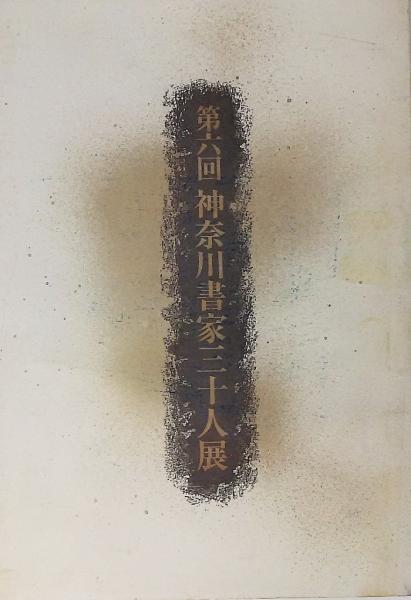 第六回 神奈川書家三十人展